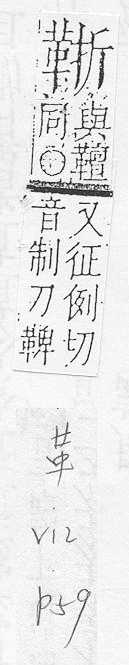 䩢
與
同○
又征例切
音制刀鞞
革
V12
p59